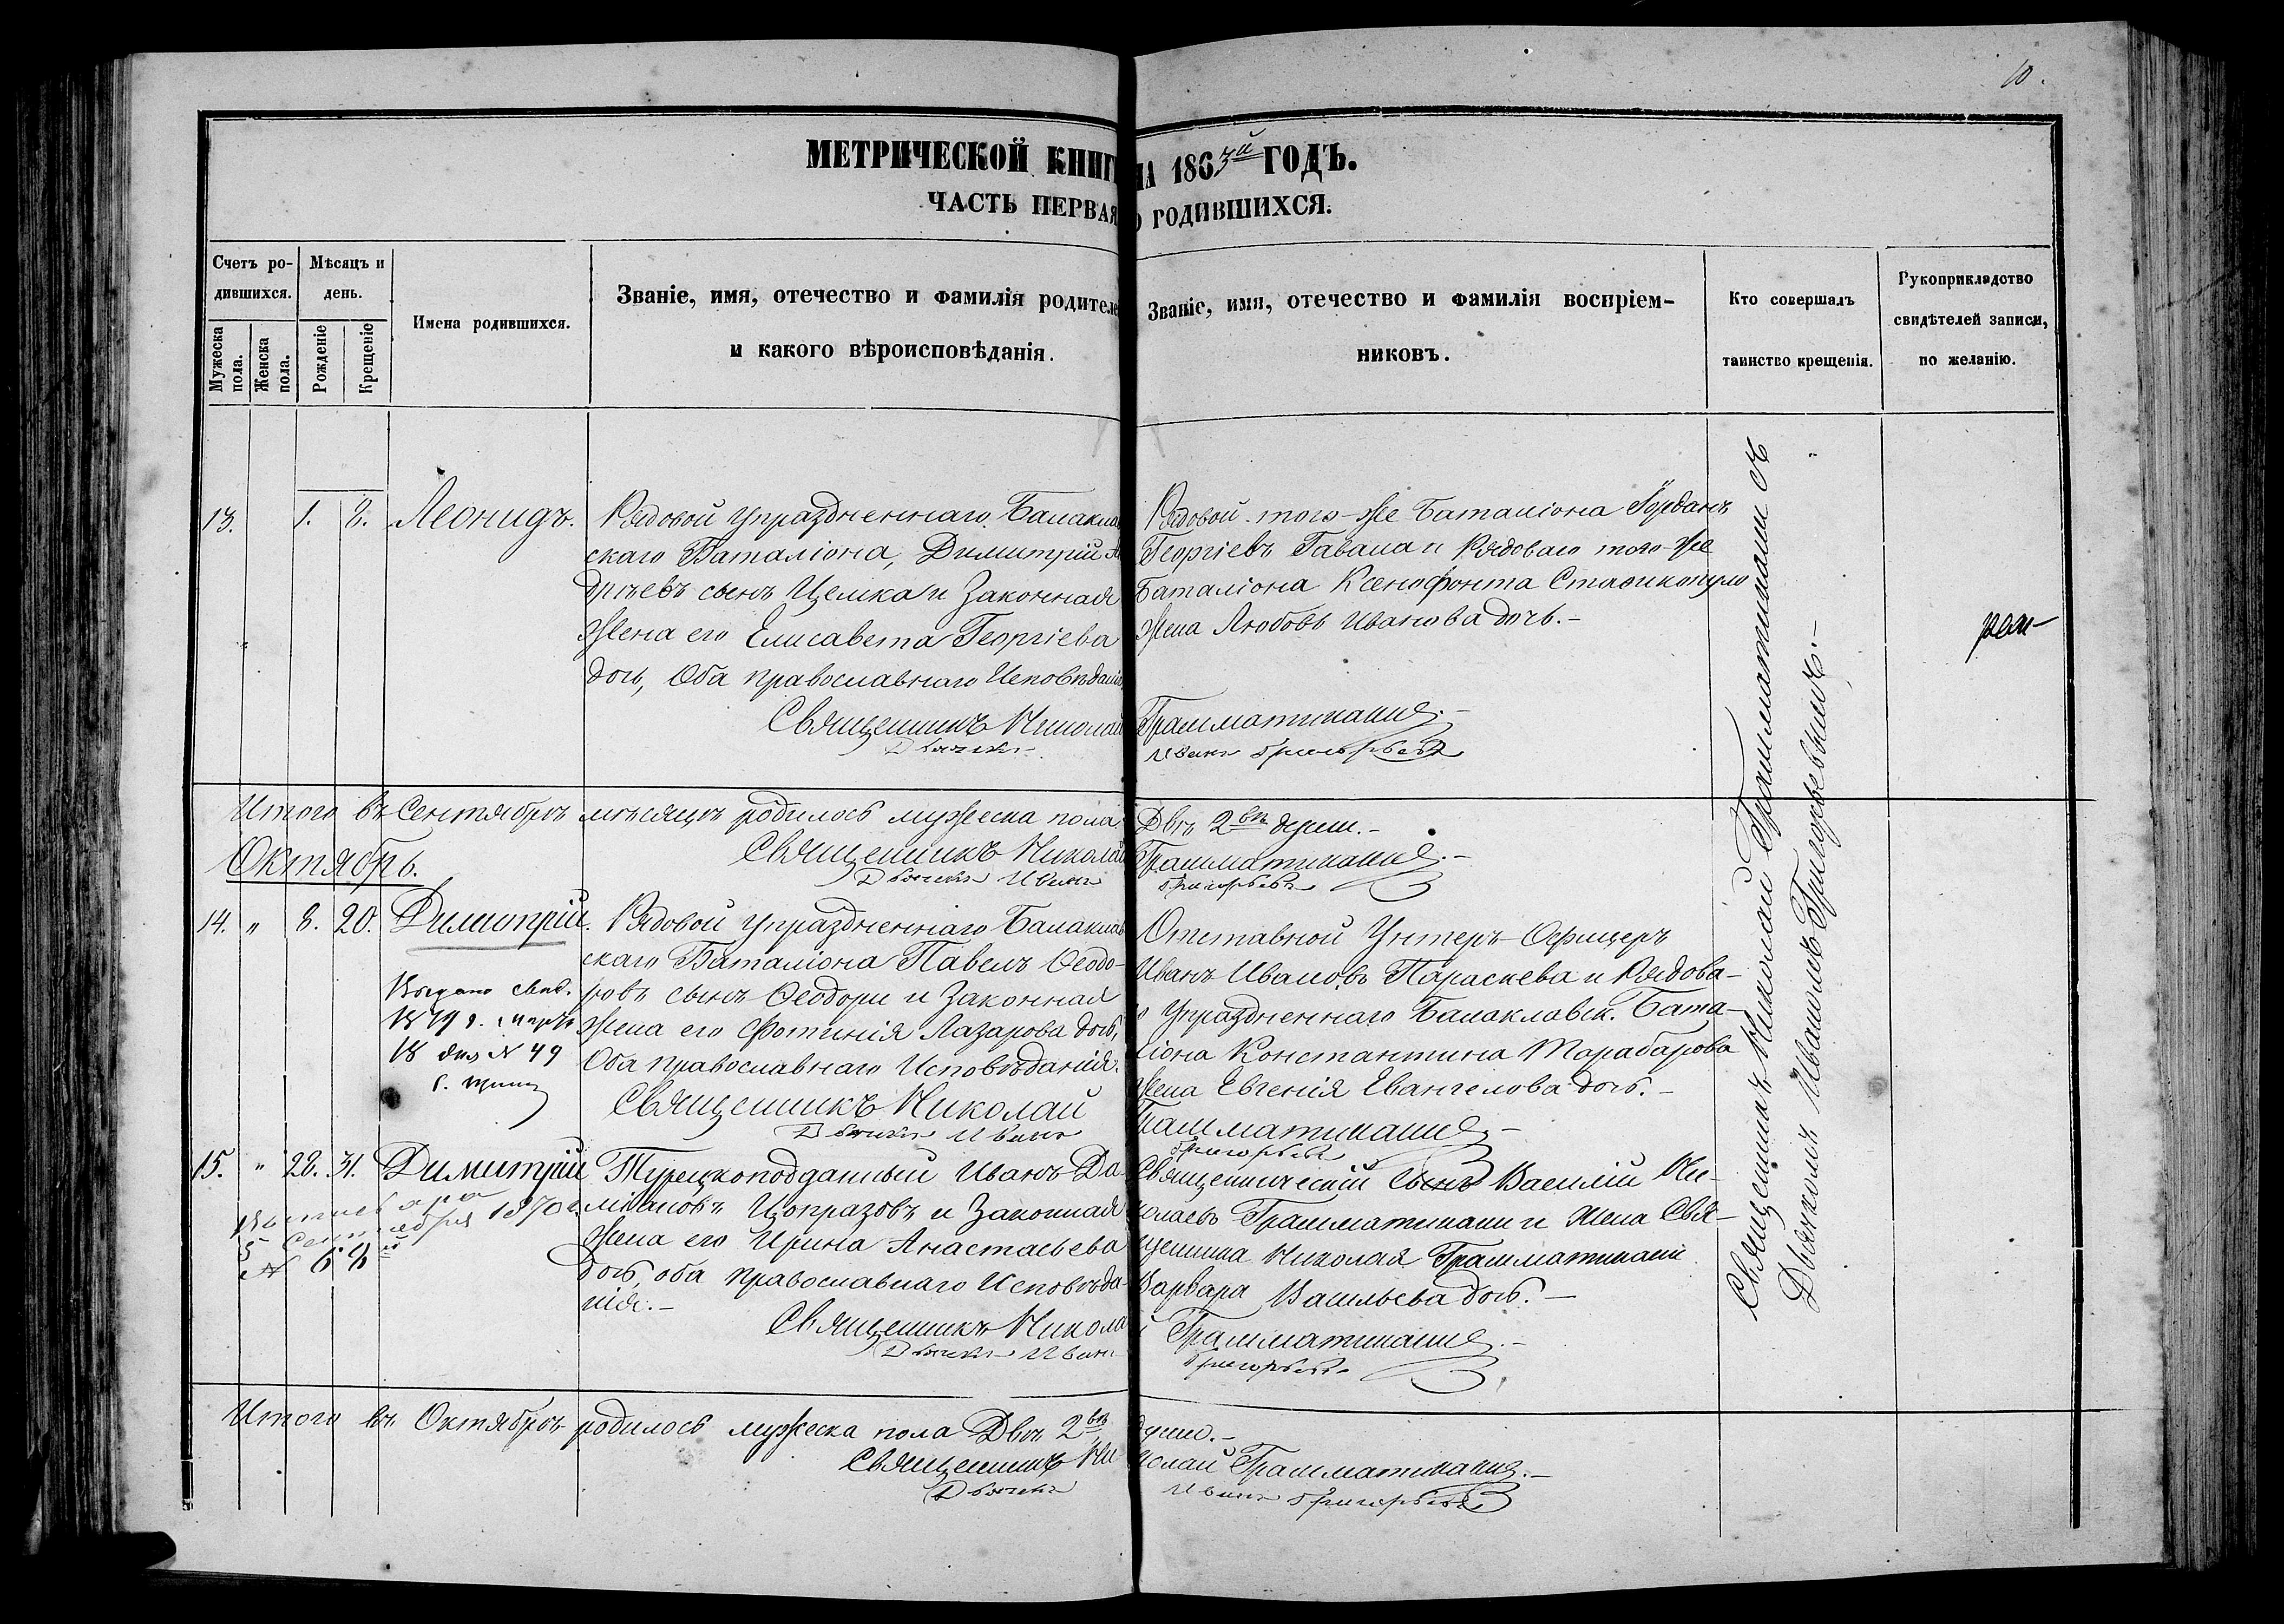 10.
МЕТРИЧЕСКОЙ КНИГ НА 1863й ГОДЪ.
ЧАСТЬ ПЕРВАЯ О РОДИВШИХСЯ.
Счетъ родившихся.
Мужеска пола.
Женска пола.
Мѣсяцъ и день.
Рожденіе
Крещеніе
Имена родившихся.
Званіе, имя, отечество и фамилія родителе
и какого вѣроисповѣданія.
Званіе, имя, отечество и фамилія воспріем-
никовъ.
Кто совершалъ
таинство крещенія.
Рукоприкладство
свидѣтелей записи,
по желанію.
13. 1. 2. Леонидъ.
Рядовой упраздненнаго Балакла
скаго Баталіона, Димитрій А
дреевъ сынъ Целика и Законная
жена его Елисавета Георгіева
дочь, Оба православнаго Исповѣданія
Рядовой того-же Баталіона Іорданъ
Георгіевъ Гавала и Рядоваго того-же
Баталіона Ксенофонта Стасикопуло
жена Любовь Иванова дочь.-
Священникъ Николай Грамматикаки.-
Дьячекъ Иванъ Григорьевъ
Итого въ Сентябрѣ мѣсяцѣ родилось мужеска пола Двѣ 2вѣ душ.-
Священникъ Николай Грамматикаки.-
Дьячекъ Иванъ Григорьевъ
Октябрь.
14. " 8. 20. Димитрій.
Выдано свид.
1879 г. марта
18 дня № 49
Рядовой упраздненнаго Балаклав
скаго Баталіона Павелъ Ѳеодо-
ровъ сынъ Ѳеодори и Законная
жена его Фотинія Лазарова дочь,
Оба православнаго Исповѣданія.
Отставной Унтеръ-Офицеръ
Иванъ Ивановъ Параскева и Рядова-
о упраздненнаго Балаклавск. Бата-
ліона Константина Тарабарова
жена Евгенія Евангелова дочь.-
Священникъ Николай Грамматикаки.-
Дьячекъ Иванъ Григорьевъ
15. " 28. 31. Димитрій
5 Сентября 1870 г.
№
Турецкоподданный Иванъ Да-
міановъ Цопразовъ и Законная
жена его Ирина Анастасьева
дочь, оба православнаго Исповѣда-
нія.-
Священническій сынъ Василій Ни-
колаевъ Грамматикаки и жена Свя-
щенника Николая Грамматикаки
Варвара Васильева дочь.-
Священникъ Николай Грамматикаки.-
Дьячекъ Иванъ Григорьевъ
Итого въ Октябрѣ родилось мужеска пола Двѣ 2вѣ душ.-
Священникъ Николай Грамматикаки.-
Дьячекъ Иванъ Григорьевъ
Священникъ Николай Грамматикаки съ
Дьячкомъ Иваномъ Григорьевымъ.-